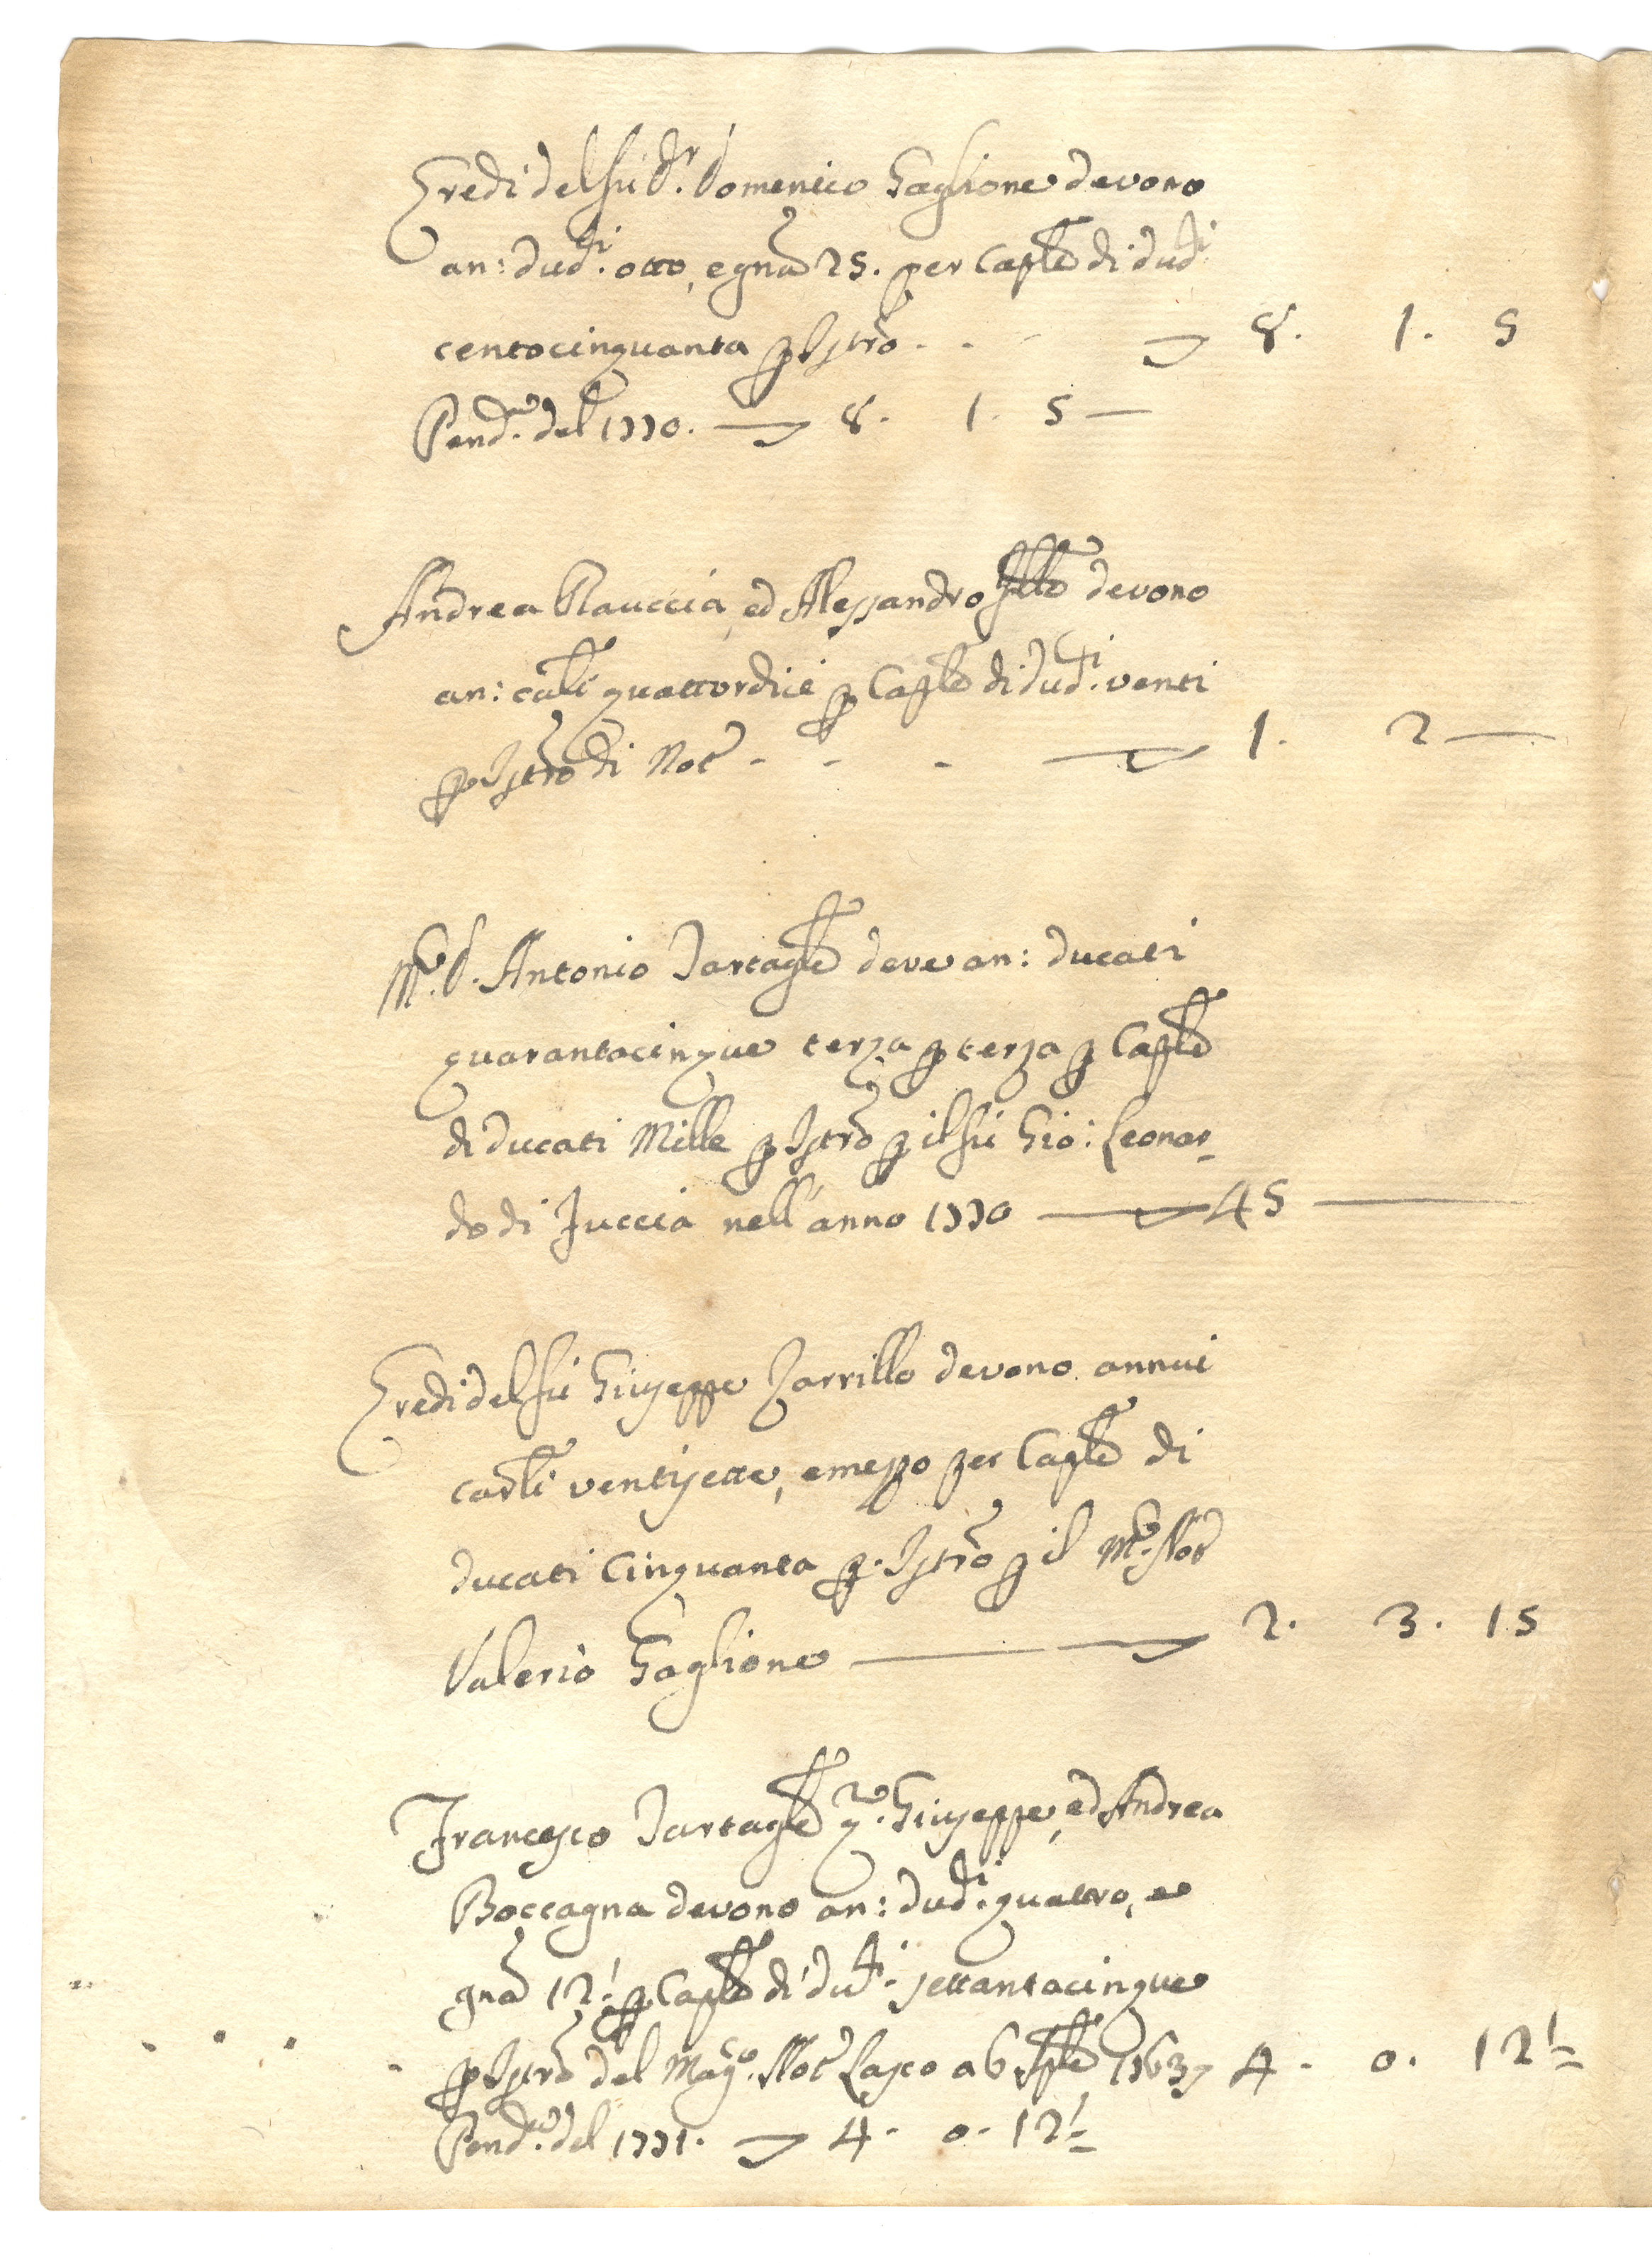 Eredi del fù D.r Domenico Gaglione devono
an: duc.ti otto, e gna 25. per Cap.le di duc.ti
centocinquanta p Istro - - - 8. 1. 5
Pend.e del 1770. — 8. 1. 5 —
Andrea Rauccia, ed Alessandro devono
an: carli quattordici p Cap.le di duc.ti venti
p Istro di Not.r - - - 1. 2 —
M.co D. Antonio Tartag.le deve an: ducati
quarantacinque terza p terza p Cap.le
di ducati Mille p Istro p il fù Gio: Leonar-
do di Juccia nell'anno 1770 — 45 —
Eredi del fù Giuseppe Zarrillo devono annui
carli ventisette, e mezzo per Cap.le di
ducati Cinquanta p. Istro p il M.co Not.r
Valerio Gaglione — 2. 3. 15
Francesco Tartag.le q.m Giuseppe, ed Andrea
Boccagna devono an: duc.ti quattro, e
gna 12½ p Cap.le di duc.ti settantacinque
p Istro del Mag.co Not.r Lasco a 6 1763 4 - 0. 12½
Pend.e del 1771. — 4 - 0 - 12½